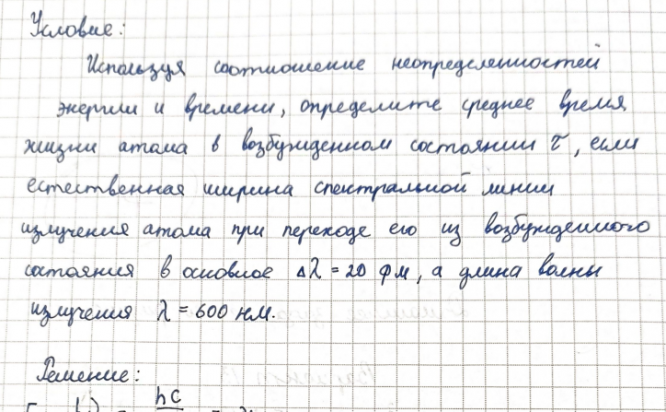 Условие:
Используя соотношение неопределенностей
энергии и времени, определите среднее время
жизни атома в возбужденном состоянии τ, если
естественная ширина спектральной линии
излучения атома при переходе его из возбужденного
состояния в основное Δλ = 20 фм, а длина волны
излучения λ = 600 нм.
Решение:
hc